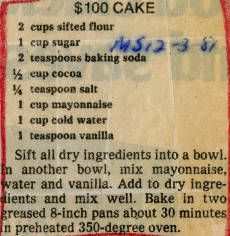 $100 CAKE
2 cups sifted flour
1 cup sugar
MS 12-3-81
2 teaspoons baking soda
½ cup cocoa
¼ teaspoon salt
1 cup mayonnaise
1 cup cold water
1 teaspoon vanilla
Sift all dry ingredients into a bowl.
In another bowl, mix mayonnaise,
water and vanilla. Add to dry ingre-
dients and mix well. Bake in two
greased 8-inch pans about 30 minutes
in preheated 350-degree oven.